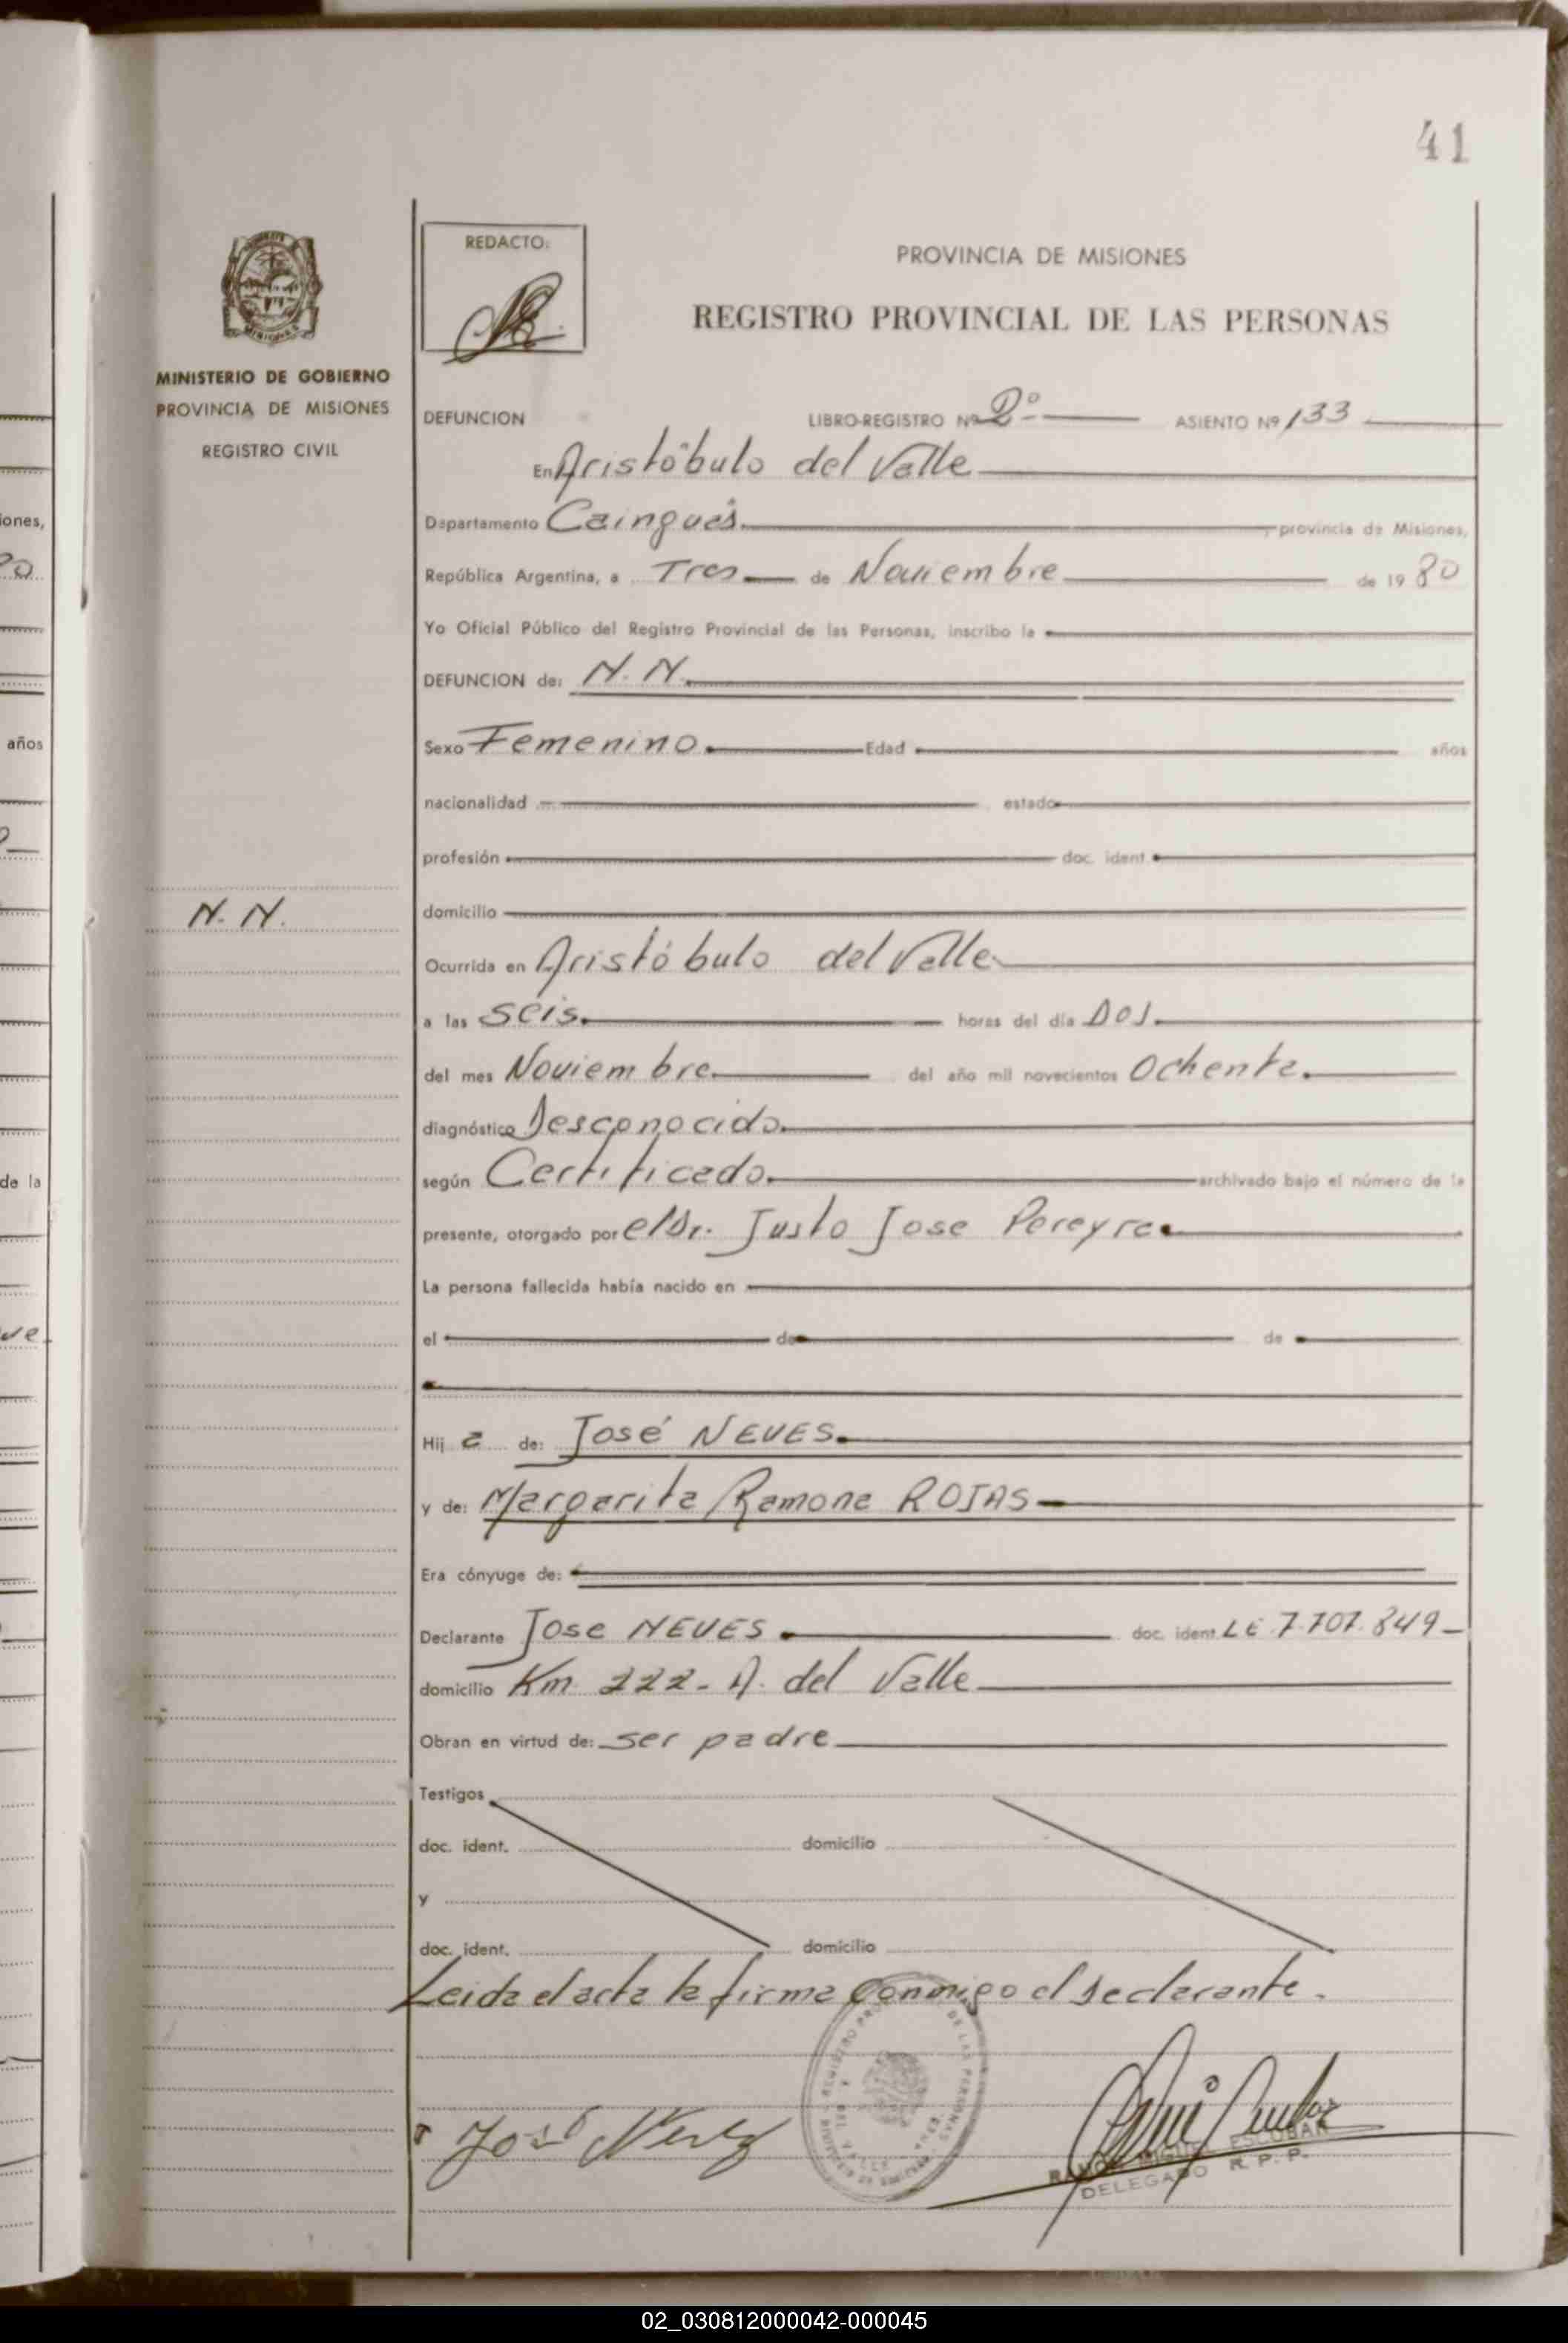 41
REDACTO:
PROVINCIA DE MISIONES
REGISTRO PROVINCIAL DE LAS PERSONAS
MINISTERIO DE GOBIERNO
PROVINCIA DE MISIONES
REGISTRO CIVIL
DEFUNCION LIBRO-REGISTRO Nº 2º ASIENTO Nº 133
En Aristóbulo del Valle
Departamento Cainguás. , provincia de Misiones,
República Argentina, a Tres de Noviembre de 19 80
Yo Oficial Público del Registro Provincial de las Personas, inscribo la
DEFUNCION de: N. N.
Sexo Femenino. Edad años
nacionalidad estado
profesión doc. ident.
N. N.
domicilio
Ocurrida en Aristóbulo del Valle
a las seis. horas del día Dos.
del mes Noviembre. del año mil novecientos Ochenta.
diagnóstico Desconocido.
según Certificado. archivado bajo el número de la
presente, otorgado por el Dr. Justo Jose Pereyra
La persona fallecida había nacido en
el de de
Hij a de: José NEVES.
y de: Margarita Ramona ROJAS
Era cónyuge de:
Declarante Jose NEVES doc. ident. LE 7.707.849
domicilio Km 222 - A. del Valle
Obran en virtud de: ser padre
Testigos
doc. ident. domicilio
y
doc. ident. domicilio
Leida el acta la firma conmigo el declarante.
José Neves
RAMON MIGUEL ESCOBAR
DELEGADO R. P. P.
iones,
80
años
de la
ve
02_030812000042-000045